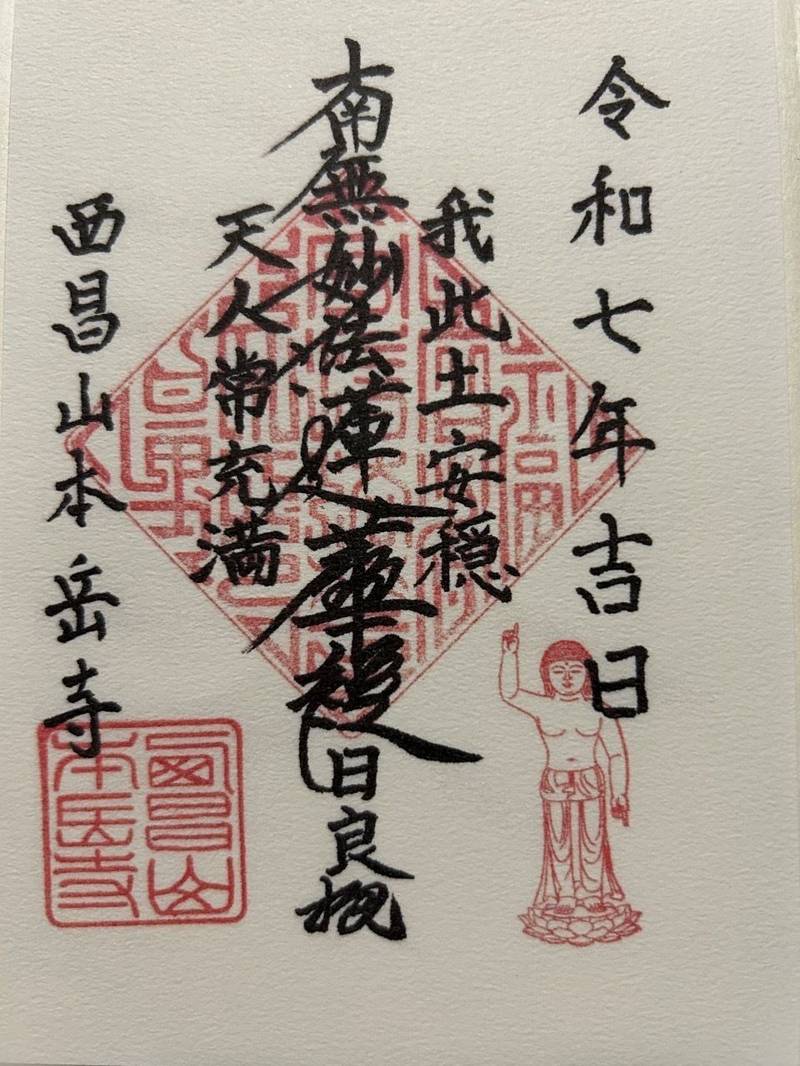 令和七年吉日
我此土安穏
南無妙法蓮華経
日良
天人常充満
西昌山本岳寺
西昌山
本岳寺